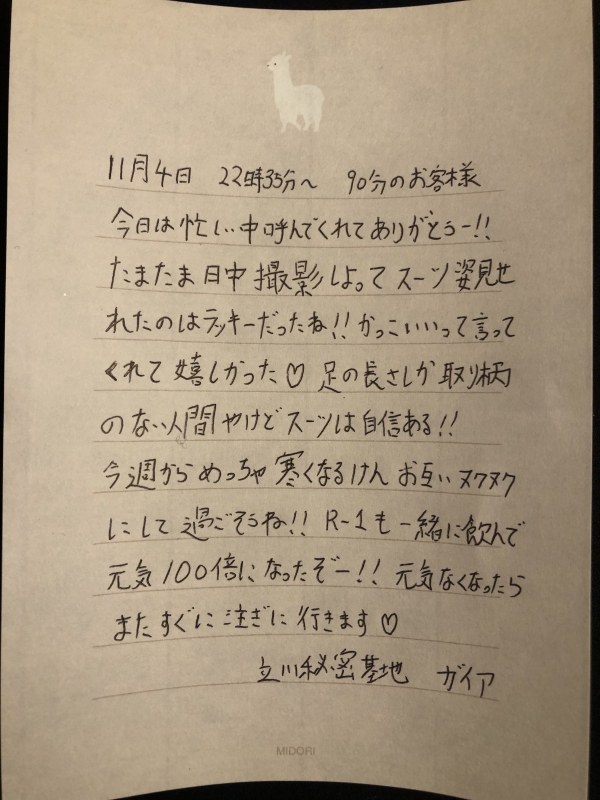 11月4日 22時35分〜 90分のお客様
今日は忙しい中呼んでくれてありがとうー!!
たまたま日中撮影しよってスーツ姿見せ
れたのはラッキーだったね!!かっこいいって言って
くれて嬉しかった♡ 足の長さしか取り柄
のない人間やけどスーツは自信ある!!
今週からめっちゃ寒くなるけんお互いヌクヌク
にして過ごそうね!! R-1も一緒に飲んで
元気100倍になったぞー!! 元気なくなったら
またすぐに注ぎに行きます♡
立川秘密基地 ガイア
MIDORI